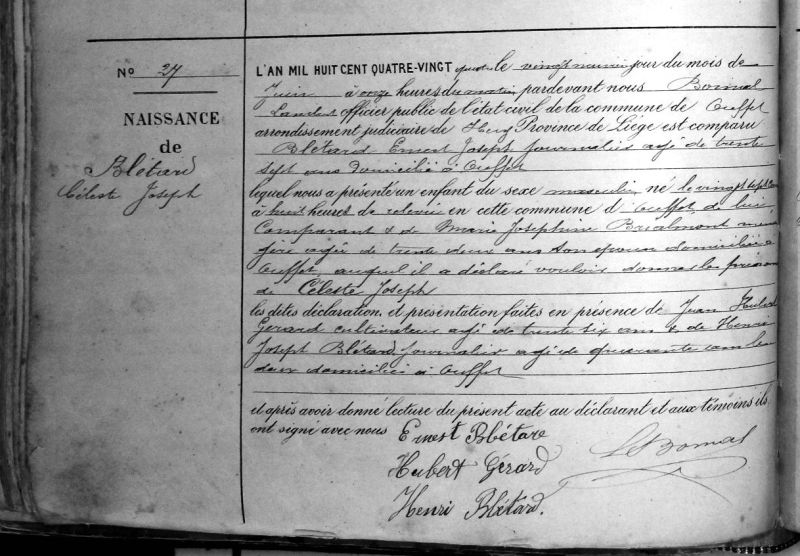 No 27
NAISSANCE
de
Blétard
Céleste Joseph
L'AN MIL HUIT CENT QUATRE-VINGT quatre le vingt neuvième jour du mois de
Juin à onze heures du matin pardevant nous Bomal
Lambert officier public de l'état civil de la commune de Ouffet
arrondissement judiciaire de Huy Province de Liége est comparu
Blétard Ernest Joseph journalier agé de trente
sept ans domicilié à Ouffet
lequel nous a présenté un enfant du sexe masculin, né le vingt sept Juin
à huit heures de relevée en cette commune d'Ouffet, de lui
Comparant & de Marie Joséphine Brialmont ména
gère agée de trente deux ans son épouse domiciliée à
Ouffet, auquel il a déclaré vouloir donner les prénoms
de Céleste Joseph
les dites déclaration et présentation faites en présence de Jean Hubert
Gérard cultivateur agé de trente six ans & de Henri
Joseph Blétard, journalier agé de quarante ans les
deux domicilié à Ouffet
et après avoir donné lecture du présent acte au déclarant et aux témoins ils
ont signé avec nous Ernest Blétare
Hubert Gérard
Henri Blétard.
Bomal